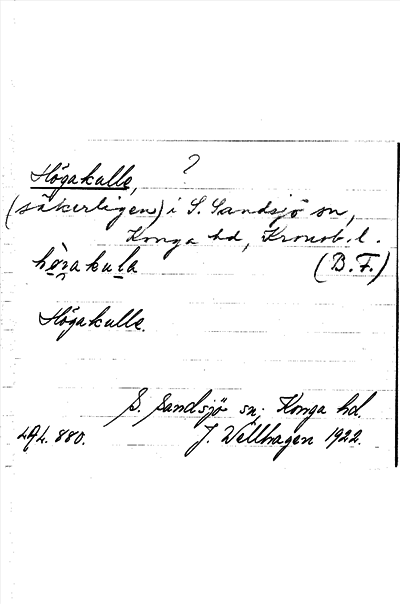 ?
Högakulle,
(säkerligen) i S. Sandsjö sn,
Konga hd, Kronob. l.
hørakula (B.F.)
Högakulle.
S. Sandsjö sn; Konga hd.
LAL. 880. J. Wellhagen 1922.